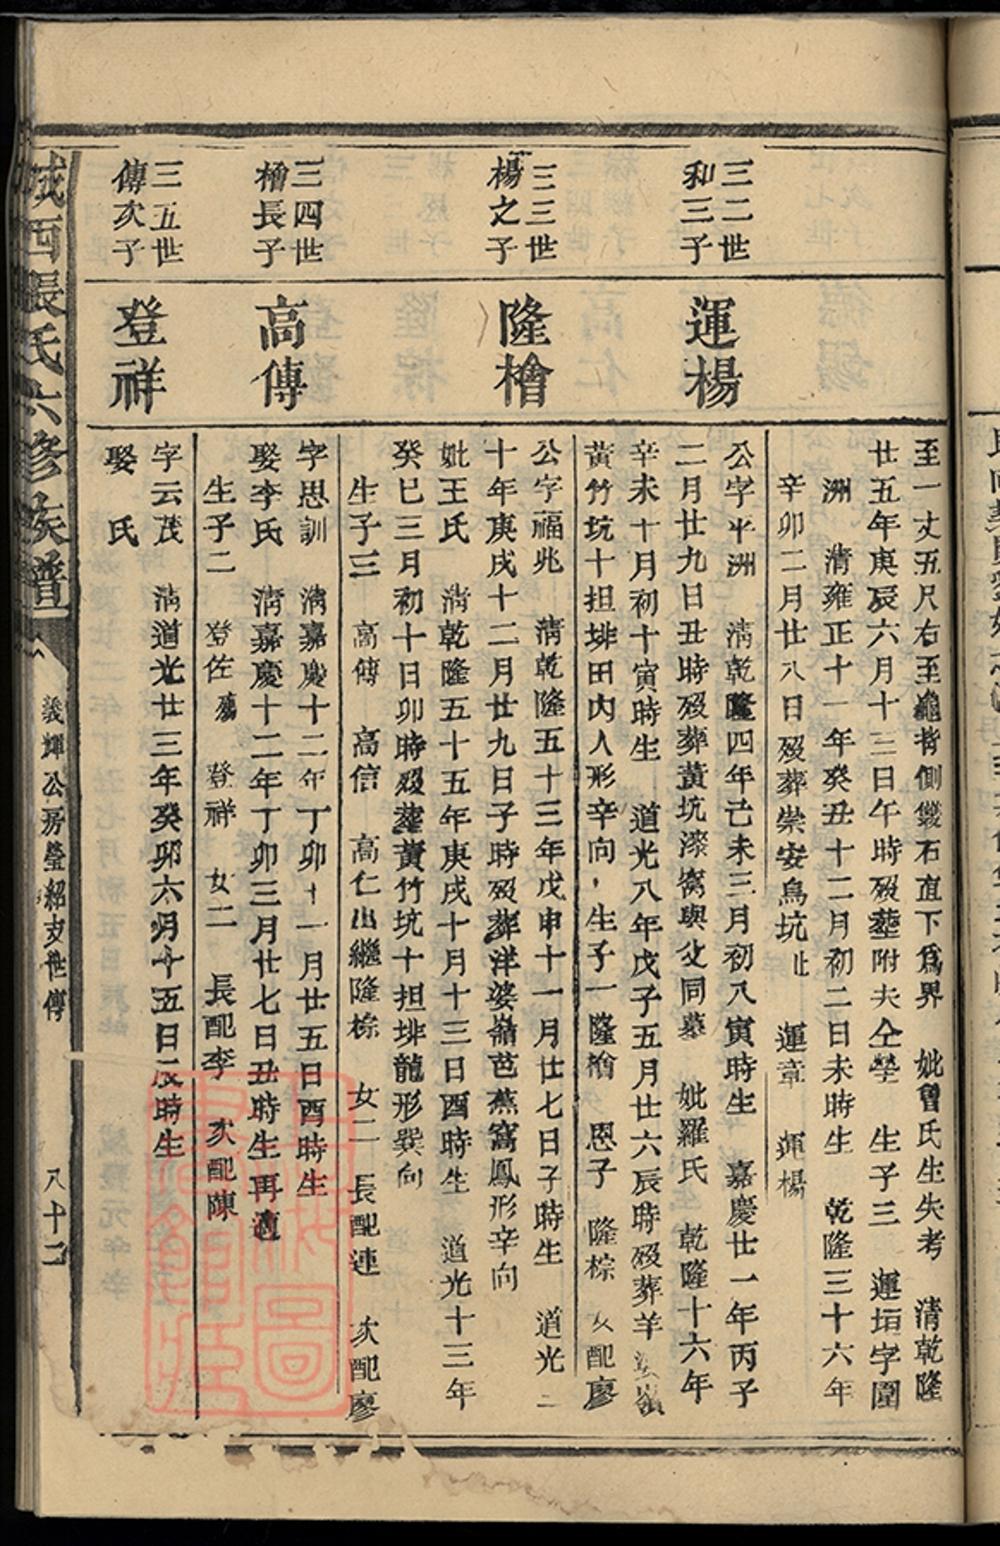 至一丈五尺右至龜背側鑿石直下爲界 妣曾氏生失考 清乾隆
廿五年庚辰六月十三日午時歿塟附夫仝塋 生子三 運垣字圍
洲 清雍正十一年癸丑十二月初二日未時生 乾隆三十六年
辛卯二月廿八日歿葬崇安烏坑 運章 運楊
三二世
和三子
運楊
公字平洲 清乾隆四年己未三月初八寅時生 嘉慶廿一年丙子
二月廿九日丑時歿葬黃坑漈窩與父同墓 妣羅氏 乾隆十六年
辛未十月初十寅時生 道光八年戊子五月廿六辰時歿葬羊
黃竹坑十担排田內人形辛向生子一隆檜 恩子 隆棕 女配廖
三三世
楊之子
隆檜
公字福兆 清乾隆五十三年戊申十一月廿七日子時生 道光
十年庚戌十二月廿九日子時歿葬洋婆崩芭蕉窩鳳形辛向
妣王氏 清乾隆五十五年庚戌十月十三日酉時生 道光十三年
癸巳三月初十日卯時歿塟黃竹坑十担排龍形巽向
生子三 高傳 高信 高仁出繼隆棕 女二 長配連 次配廖
三四世
檜長子
高傳
字思訓 清嘉慶十二年丁卯十一月廿五日酉時生
娶李氏 清嘉慶十二年丁卯三月廿七日丑時生再適
生子二 登佐 登祥 女二 長配李 次配陳
三五世
傳次子
登祥
字云茂 清道光廿三年癸卯六月十五日辰時生
娶 氏
城西張氏六修族譜
義輝公房瑩紹支世傳
八十二